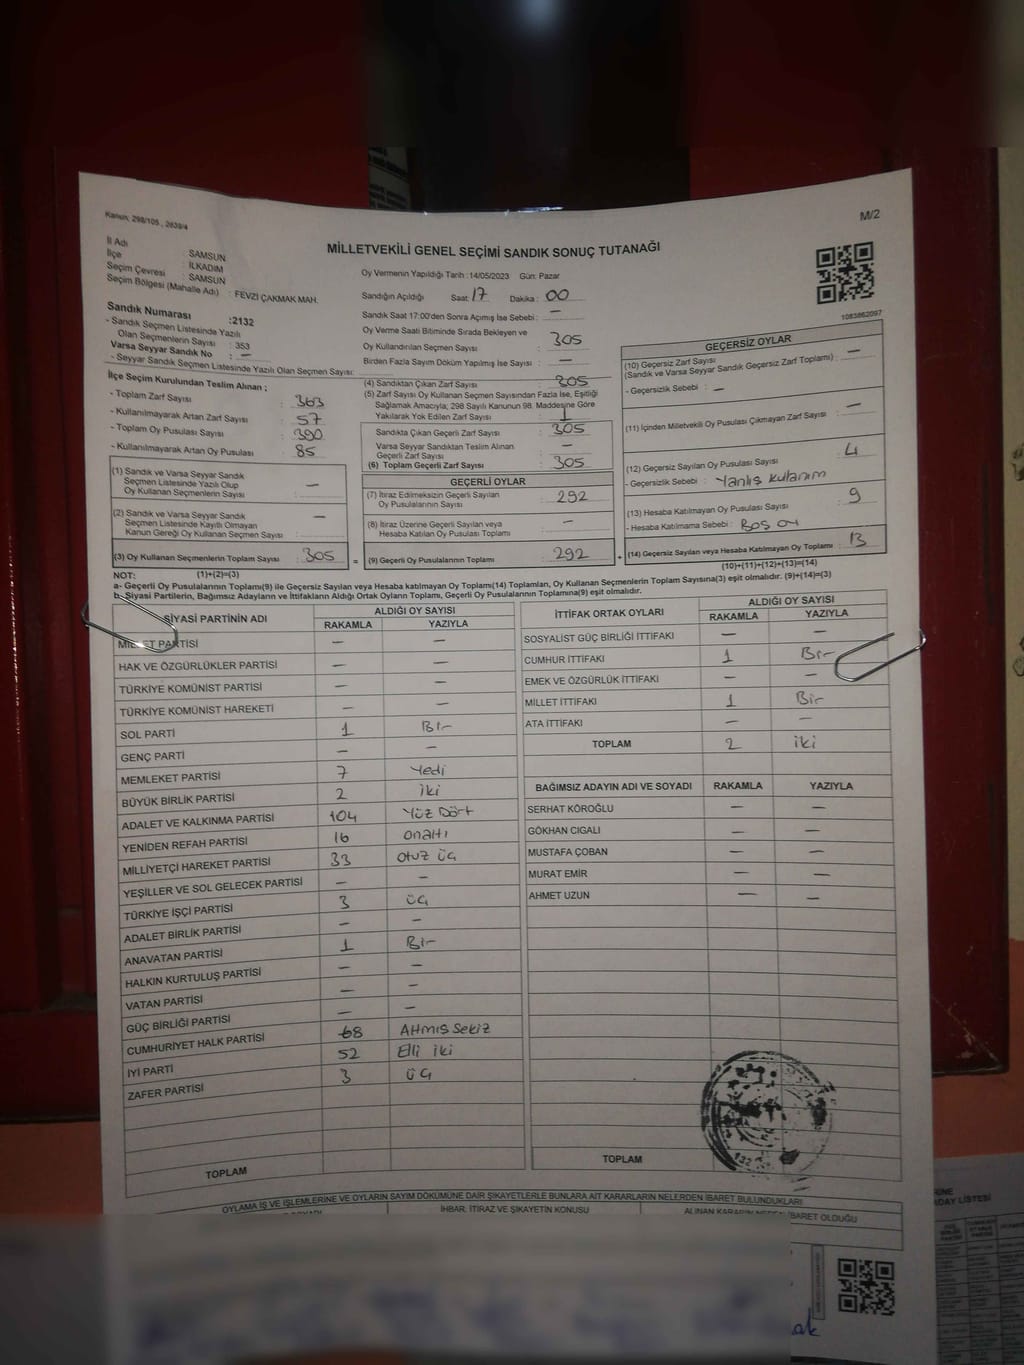 Kanun, 298/105 , 2839/4
M/2
MİLLETVEKİLİ GENEL SEÇİMİ SANDIK SONUÇ TUTANAĞI
İl Adı : SAMSUN
İlçe : İLKADIM
Seçim Çevresi : SAMSUN
Seçim Bölgesi (Mahalle Adı) : FEVZİ ÇAKMAK MAH.
Sandık Numarası :2132
- Sandık Seçmen Listesinde Yazılı
Olan Seçmenlerin Sayısı : 353
Varsa Seyyar Sandık No : —
- Seyyar Sandık Seçmen Listesinde Yazılı Olan Seçmen Sayısı:
Oy Vermenin Yapıldığı Tarih :14/05/2023 Gün: Pazar
Sandığın Açıldığı Saat 17 Dakika : 00
Sandık Saat 17:00'den Sonra Açımış İse Sebebi : —
Oy Verme Saati Bitiminde Sırada Bekleyen ve
Oy Kullandırılan Seçmen Sayısı : 305
Birden Fazla Sayım Döküm Yapılmış İse Sayısı : —
1083862097
İlçe Seçim Kurulundan Teslim Alınan ;
- Toplam Zarf Sayısı : 363
- Kullanılmayarak Artan Zarf Sayısı : 57
- Toplam Oy Pusulası Sayısı : 390
- Kullanılmayarak Artan Oy Pusulası Sayısı : 85
(1) Sandık ve Varsa Seyyar Sandık
Seçmen Listesinde Yazılı Olup
Oy Kullanan Seçmenlerin Sayısı : —
(2) Sandık ve Varsa Seyyar Sandık
Seçmen Listesinde Kayıtlı Olmayan
Kanun Gereği Oy Kullanan Seçmenlerin Sayısı : —
(3) Oy Kullanan Seçmenlerin Toplam Sayısı : 305
(1)+(2)=(3)
(4) Sandıktan Çıkan Zarf Sayısı : 305
(5) Zarf Sayısı Oy Kullanan Seçmen Sayısından Fazla İse, Eşitliği
Sağlamak Amacıyla; 298 Sayılı Kanunun 98. Maddesine Göre
Yakılarak Yok Edilen Zarf Sayısı : 1
Sandıkta Çıkan Geçerli Zarf Sayısı : 305
Varsa Seyyar Sandıktan Teslim Alınan
Geçerli Zarf Sayısı : —
(6) Toplam Geçerli Zarf Sayısı : 305
GEÇERLİ OYLAR
(7) İtiraz Edilmeksizin Geçerli Sayılan
Oy Pusulalarının Sayısı : 292
(8) İtiraz Üzerine Geçerli Sayılan veya
Hesaba Katılan Oy Pusulası Toplamı : —
= (9) Geçerli Oy Pusulalarının Toplamı : 292
GEÇERSİZ OYLAR
(10) Geçersiz Zarf Sayısı
(Sandık ve Varsa Seyyar Sandık Geçersiz Zarf Toplamı) : —
- Geçersizlik Sebebi : —
(11) İçinden Milletvekili Oy Pusulası Çıkmayan Zarf Sayısı : —
(12) Geçersiz Sayılan Oy Pusulası Sayısı : 4
- Geçersizlik Sebebi : Yanlış kullanım
(13) Hesaba Katılmayan Oy Pusulası Sayısı : 9
- Hesaba Katılmama Sebebi : Boş oy
+ (14) Geçersiz Sayılan veya Hesaba Katılmayan Oy Toplamı : 13
(10)+(11)+(12)+(13)=(14)
NOT:
a- Geçerli Oy Pusulalarının Toplamı(9) ile Geçersiz Sayılan veya Hesaba katılmayan Oy Toplamı(14) Toplamları, Oy Kullanan Seçmenlerin Toplam Sayısına(3) eşit olmalıdır. (9)+(14)=(3)
b- Siyasi Partilerin, Bağımsız Adayların ve İttifakların Aldığı Oyların Toplamı, Geçerli Oy Pusulalarının Toplamına(9) eşit olmalıdır.
SİYASİ PARTİNİN ADI ALDIĞI OY SAYISI
RAKAMLA YAZIYLA
MİLLET PARTİSİ — —
HAK VE ÖZGÜRLÜKLER PARTİSİ — —
TÜRKİYE KOMÜNİST PARTİSİ — —
TÜRKİYE KOMÜNİST HAREKETİ — —
SOL PARTİ 1 Bir
GENÇ PARTİ — —
MEMLEKET PARTİSİ 7 Yedi
BÜYÜK BİRLİK PARTİSİ 2 iki
ADALET VE KALKINMA PARTİSİ 104 Yüz Dört
YENİDEN REFAH PARTİSİ 16 onaltı
MİLLİYETÇİ HAREKET PARTİSİ 33 otuz üç
YEŞİLLER VE SOL GELECEK PARTİSİ — —
TÜRKİYE İŞÇİ PARTİSİ 3 üç
ADALET BİRLİK PARTİSİ — —
ANAVATAN PARTİSİ 1 Bir
HALKIN KURTULUŞ PARTİSİ — —
VATAN PARTİSİ — —
GÜÇ BİRLİĞİ PARTİSİ — —
CUMHURİYET HALK PARTİSİ 68 Altmış Sekiz
İYİ PARTİ 52 Elli iki
ZAFER PARTİSİ 3 üç
TOPLAM
İTTİFAK ORTAK OYLARI ALDIĞI OY SAYISI
RAKAMLA YAZIYLA
SOSYALİST GÜÇ BİRLİĞİ İTTİFAKI — —
CUMHUR İTTİFAKI 1 Bir
EMEK VE ÖZGÜRLÜK İTTİFAKI — —
MİLLET İTTİFAKI 1 Bir
ATA İTTİFAKI — —
TOPLAM 2 iki
BAĞIMSIZ ADAYIN ADI VE SOYADI RAKAMLA YAZIYLA
SERHAT KÖROĞLU — —
GÖKHAN CIGALI — —
MUSTAFA ÇOBAN — —
MURAT EMİR — —
AHMET UZUN — —
TOPLAM
OYLAMA İŞ VE İŞLEMLERİNE VE OYLARIN SAYIM DÖKÜMÜNE DAİR ŞİKAYETLERLE BUNLARA AİT KARARLARIN NELERDEN İBARET BULUNDUKLARI
İHBAR, İTİRAZ VE ŞİKAYETİN KONUSU
ALINAN KARARIN NEDEN İBARET OLDUĞU